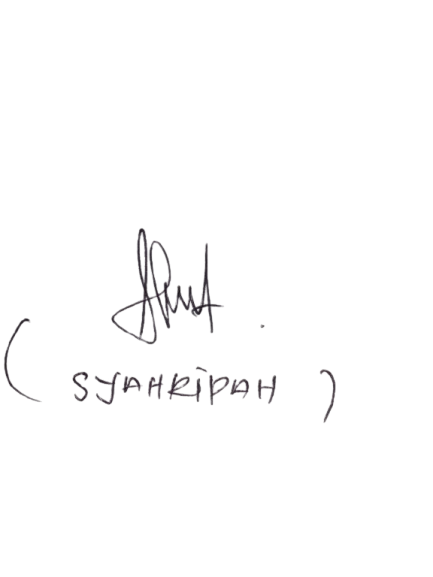 ( SYAHRiPAH )